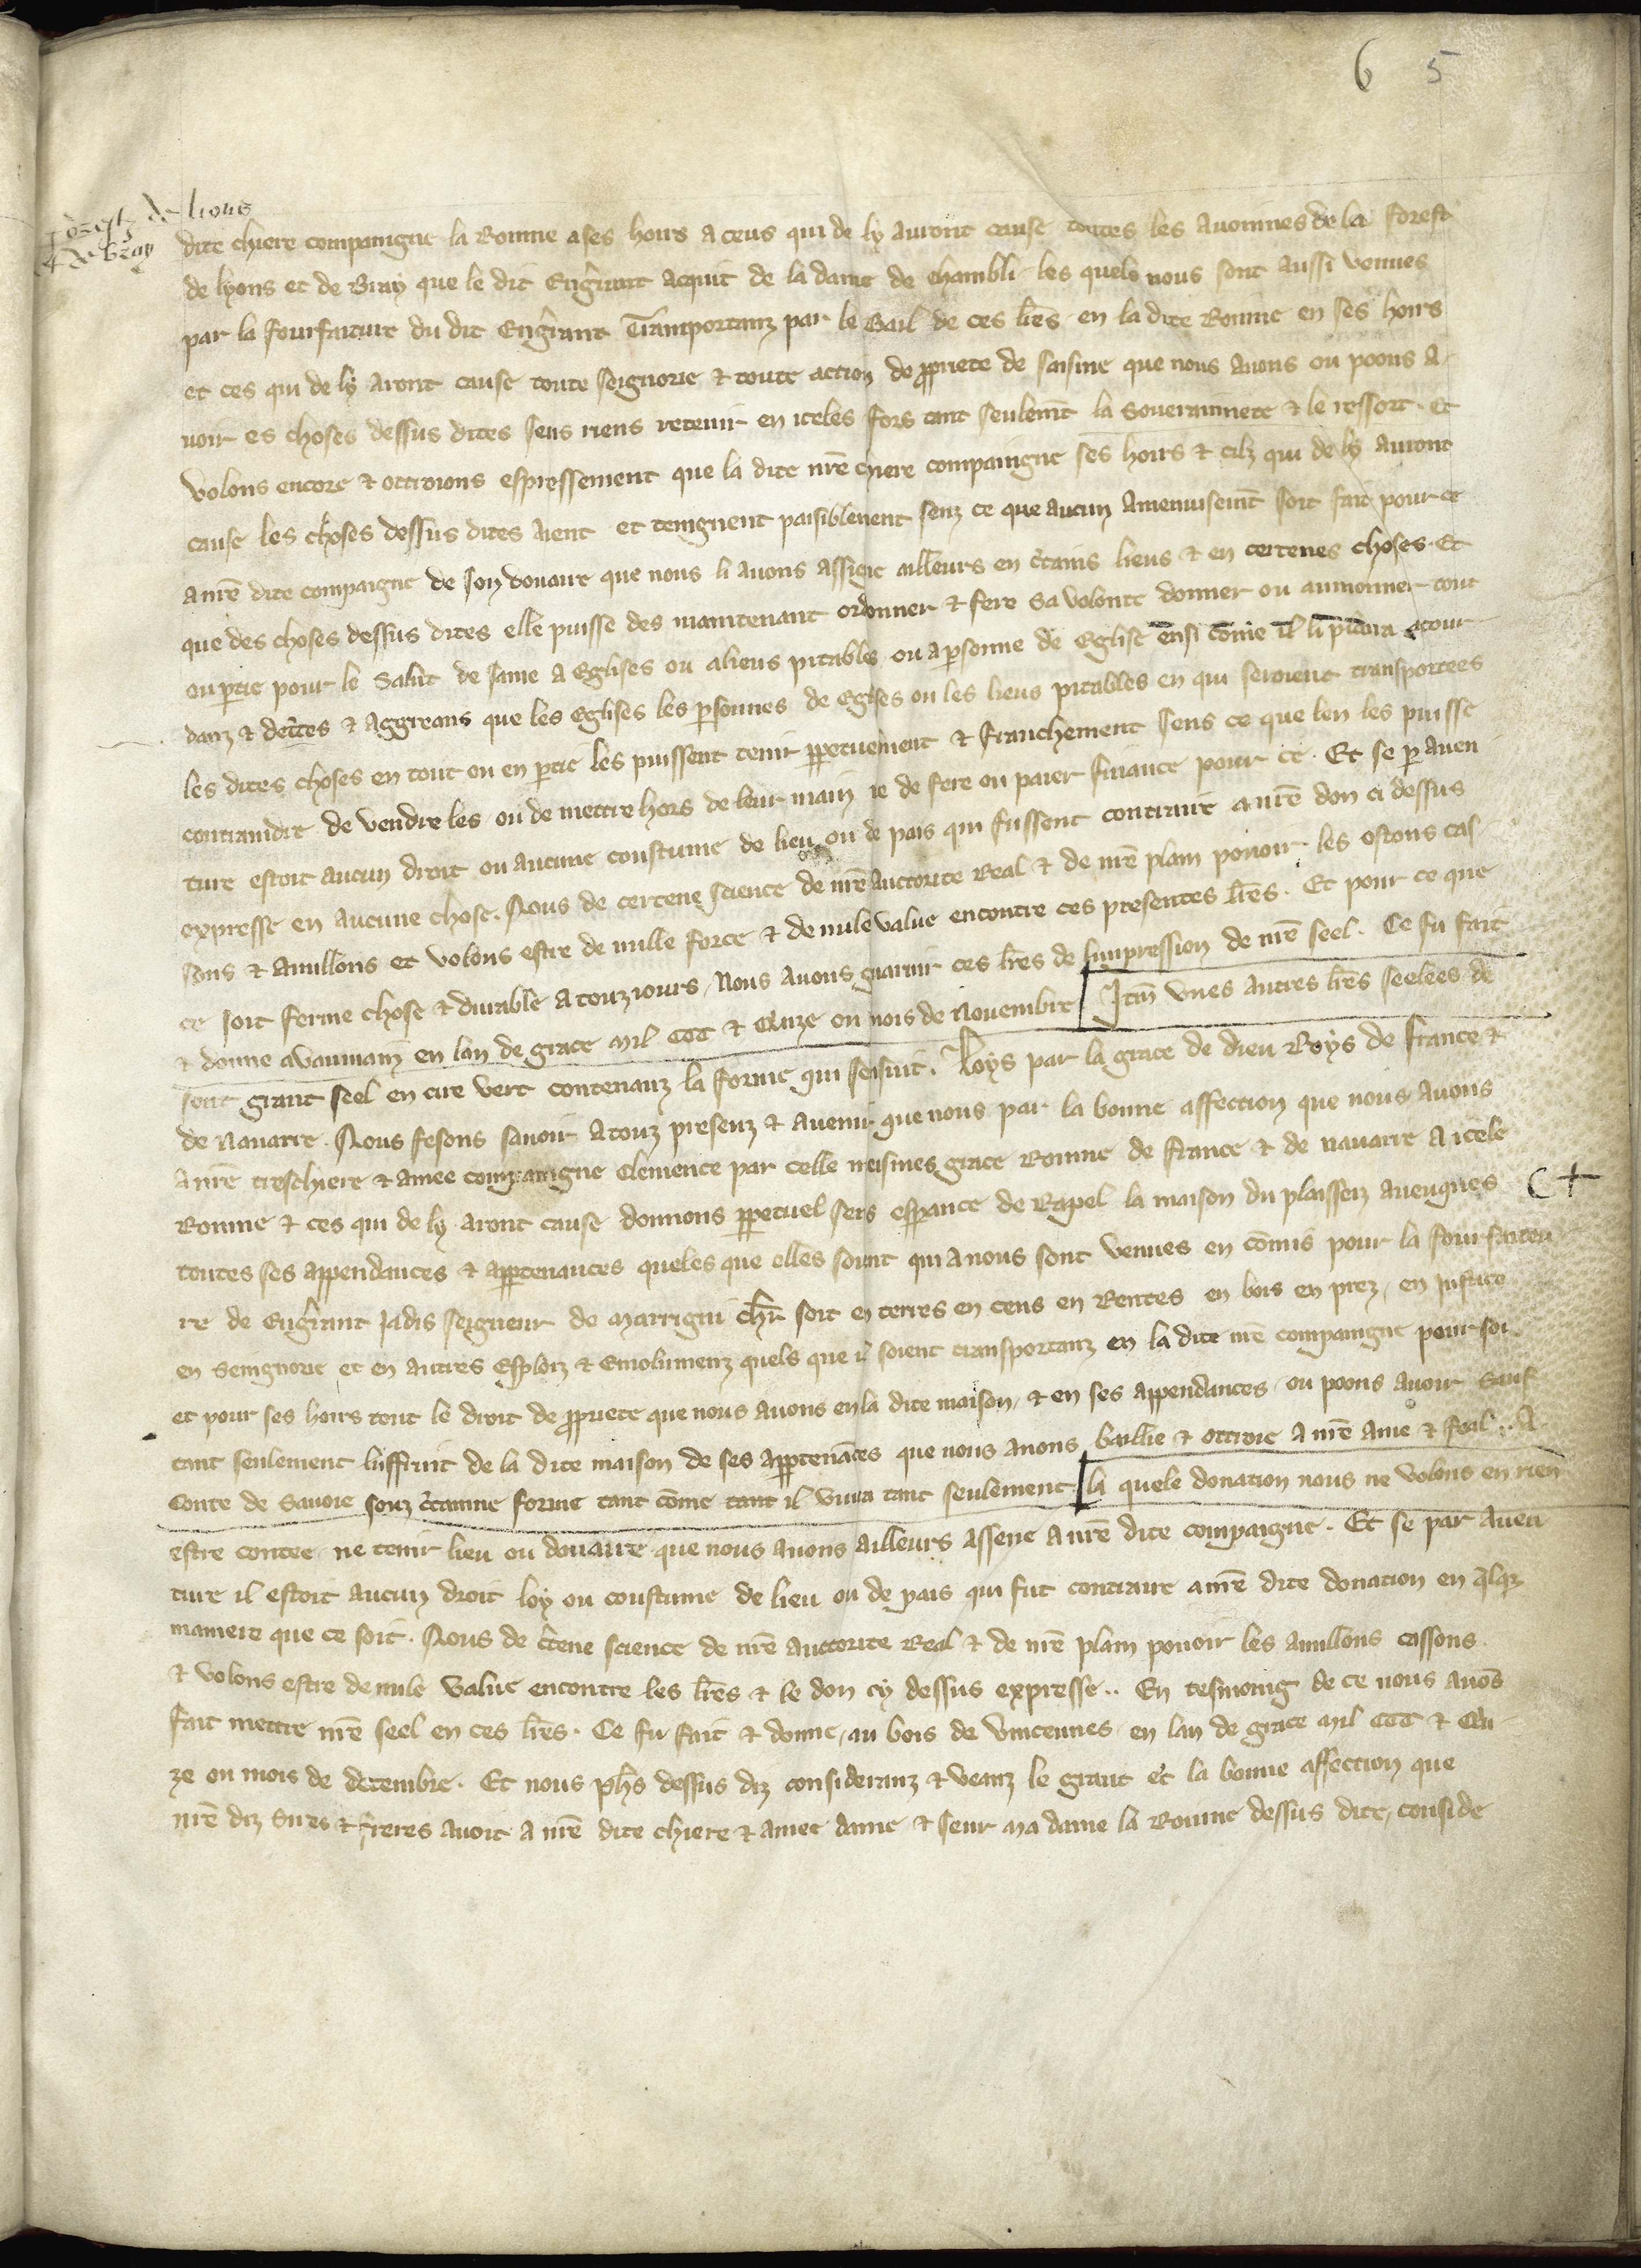 6 5
forest de lions
& de bray
dite chiere compaingne la Roinne a ses hoirs a ceus qui de ly auront cause toutes les auoinnes de la forest
de lyons et de Bray que le dit Engũrant acquit de la dame de Chambli les quels nous sont aussi venues
par la fourfaiture du dit Engũrant Transportanz par le Bail de ces lr̃es en la dite Roinne en ses hoirs
et ces qui de ly aront cause toute seignorie & toute action de ꝓpriete de saisine que nous auons ou poons a-
uoir es choses dessus dites sens riens retenir en iceles fors tant seulemt̃ la souerainnete & le ressort. Et
volons encore & ottroions espressement que la dite nr̃e chiere compaingne ses hoirs & cilz qui de ly auront
cause les choses dessus dites aient et teingnent paisiblement senz ce que aucun amenuisemt̃ soit fait pour ce
a nr̃e dite compaigne de son douaire que nous li auons assigne ailleurs en c̃tains lieus & en certenes choses. Et
que des choses dessus dites elle puisse des maintenant ordonner & fere sa volonte donner ou aumonner tout
ou ꝑtie pour le salut de same a Eglises ou a lieus pitables ou a ꝑsonne de Eglise ensi com̃e il li plaira acour
danz & dec̃tes & aggreans que les Eglises les ꝑsonnes de Eglises ou les lieus pitables en qui seroient transportees
les dites choses en tout ou en ꝑtie les puissent tenir ꝑpetuement & franchement sens ce que len les puisse
contraindre de vendre les ou de mettre hors de leur main ne de fere ou paier finance pour ce. Et se ꝑ auen
ture estoit aucun droit ou aucune coustume de lieu ou de pais qui fussent contraire a nr̃e don ci dessus
expresse en aucune chose. Nous de certene science de nr̃e auctorite Real & de nr̃e plain pouoir les ostons cas-
sons & anullons et volons estre de nulle force & de nule value encontre ces presentes lr̃es. Et pour ce que
ce soit ferme chose & durable a touz iours, Nous auons guarnir ces lr̃es de limpression de nr̃e seel. Ce fu fait
& donne a Vauuain en lan de grace mil CCC & Quinze ou mois de Nouembre Itm̃ vnes autres lr̃es seelees de
sont grant seel en cire vert contenanz la forme qui sensuit. Loys par la grace de dieu Roys de france &
de Nauarre. Nous fesons sauoir a touz presenz & auenir que nous par la bonne affection que nous auons
a nr̃e treschiere & amee compaingne Clemence par celle meismes grace Roinne de france & de nauarre a icele
Roinne & ces qui de ly aront cause donnons ꝑpetuel sens esꝑance de Rapel la maison du plaissen auenques
toutes ses appendances & apꝑtenances queles que elles soient qui a nous sont venues en com̃is pour la fourfaitu
re de Engũrant Jadis seigneur de Marrigni chr̃ soit en terres en cens en Rentes en bois en prez, en Justice
en seingnorie et en autres Esploiz & Emolumenz quels que il soient transportanz en la dite nr̃e compaingne pour soi
et pour ses hoirs tout le droit de ꝓpriete que nous auons en la dite maison, & en ses appendances ou poons auoir sauf
tant seulement luffruit de la dite maison de ses apꝑtenãces que nous auons baillie & ottroie a nr̃e ame & feal .. A.
Conte de Sauoie souz c̃tainne forme tant com̃e tant il viura tant seulement la quele donation nous ne volons en rien
estre contee, ne tenir lieu ou douaire que nous auons ailleurs assene a nr̃e dite compaigne. Et se par auen
ture il estoit aucun droit loy ou coustume de lieu ou de pais qui fut contraire a nr̃e dite donation en q̃lq̃
maniere que ce soit. Nous de c̃tene science de nr̃e auctorite Real & de nr̃e plain pouoir les anullons cassons
& volons estre de nule value encontre les lr̃es & le don cy dessus expresse.. En tesmoing de ce nous auõs
fait mettre nr̃e seel en ces lr̃es. Ce fu fait & donne, au bois de vincennes en lan de grace mil CCC & Qin
ze ou mois de decembre. Et nous ph̃s dessus diz consideranz & veanz le grant et la bonne affection que
nr̃e diz sires & freres auoit a nr̃e dite chiere & amee dame & seur ma dame la Roinne dessus dite, conside
C +